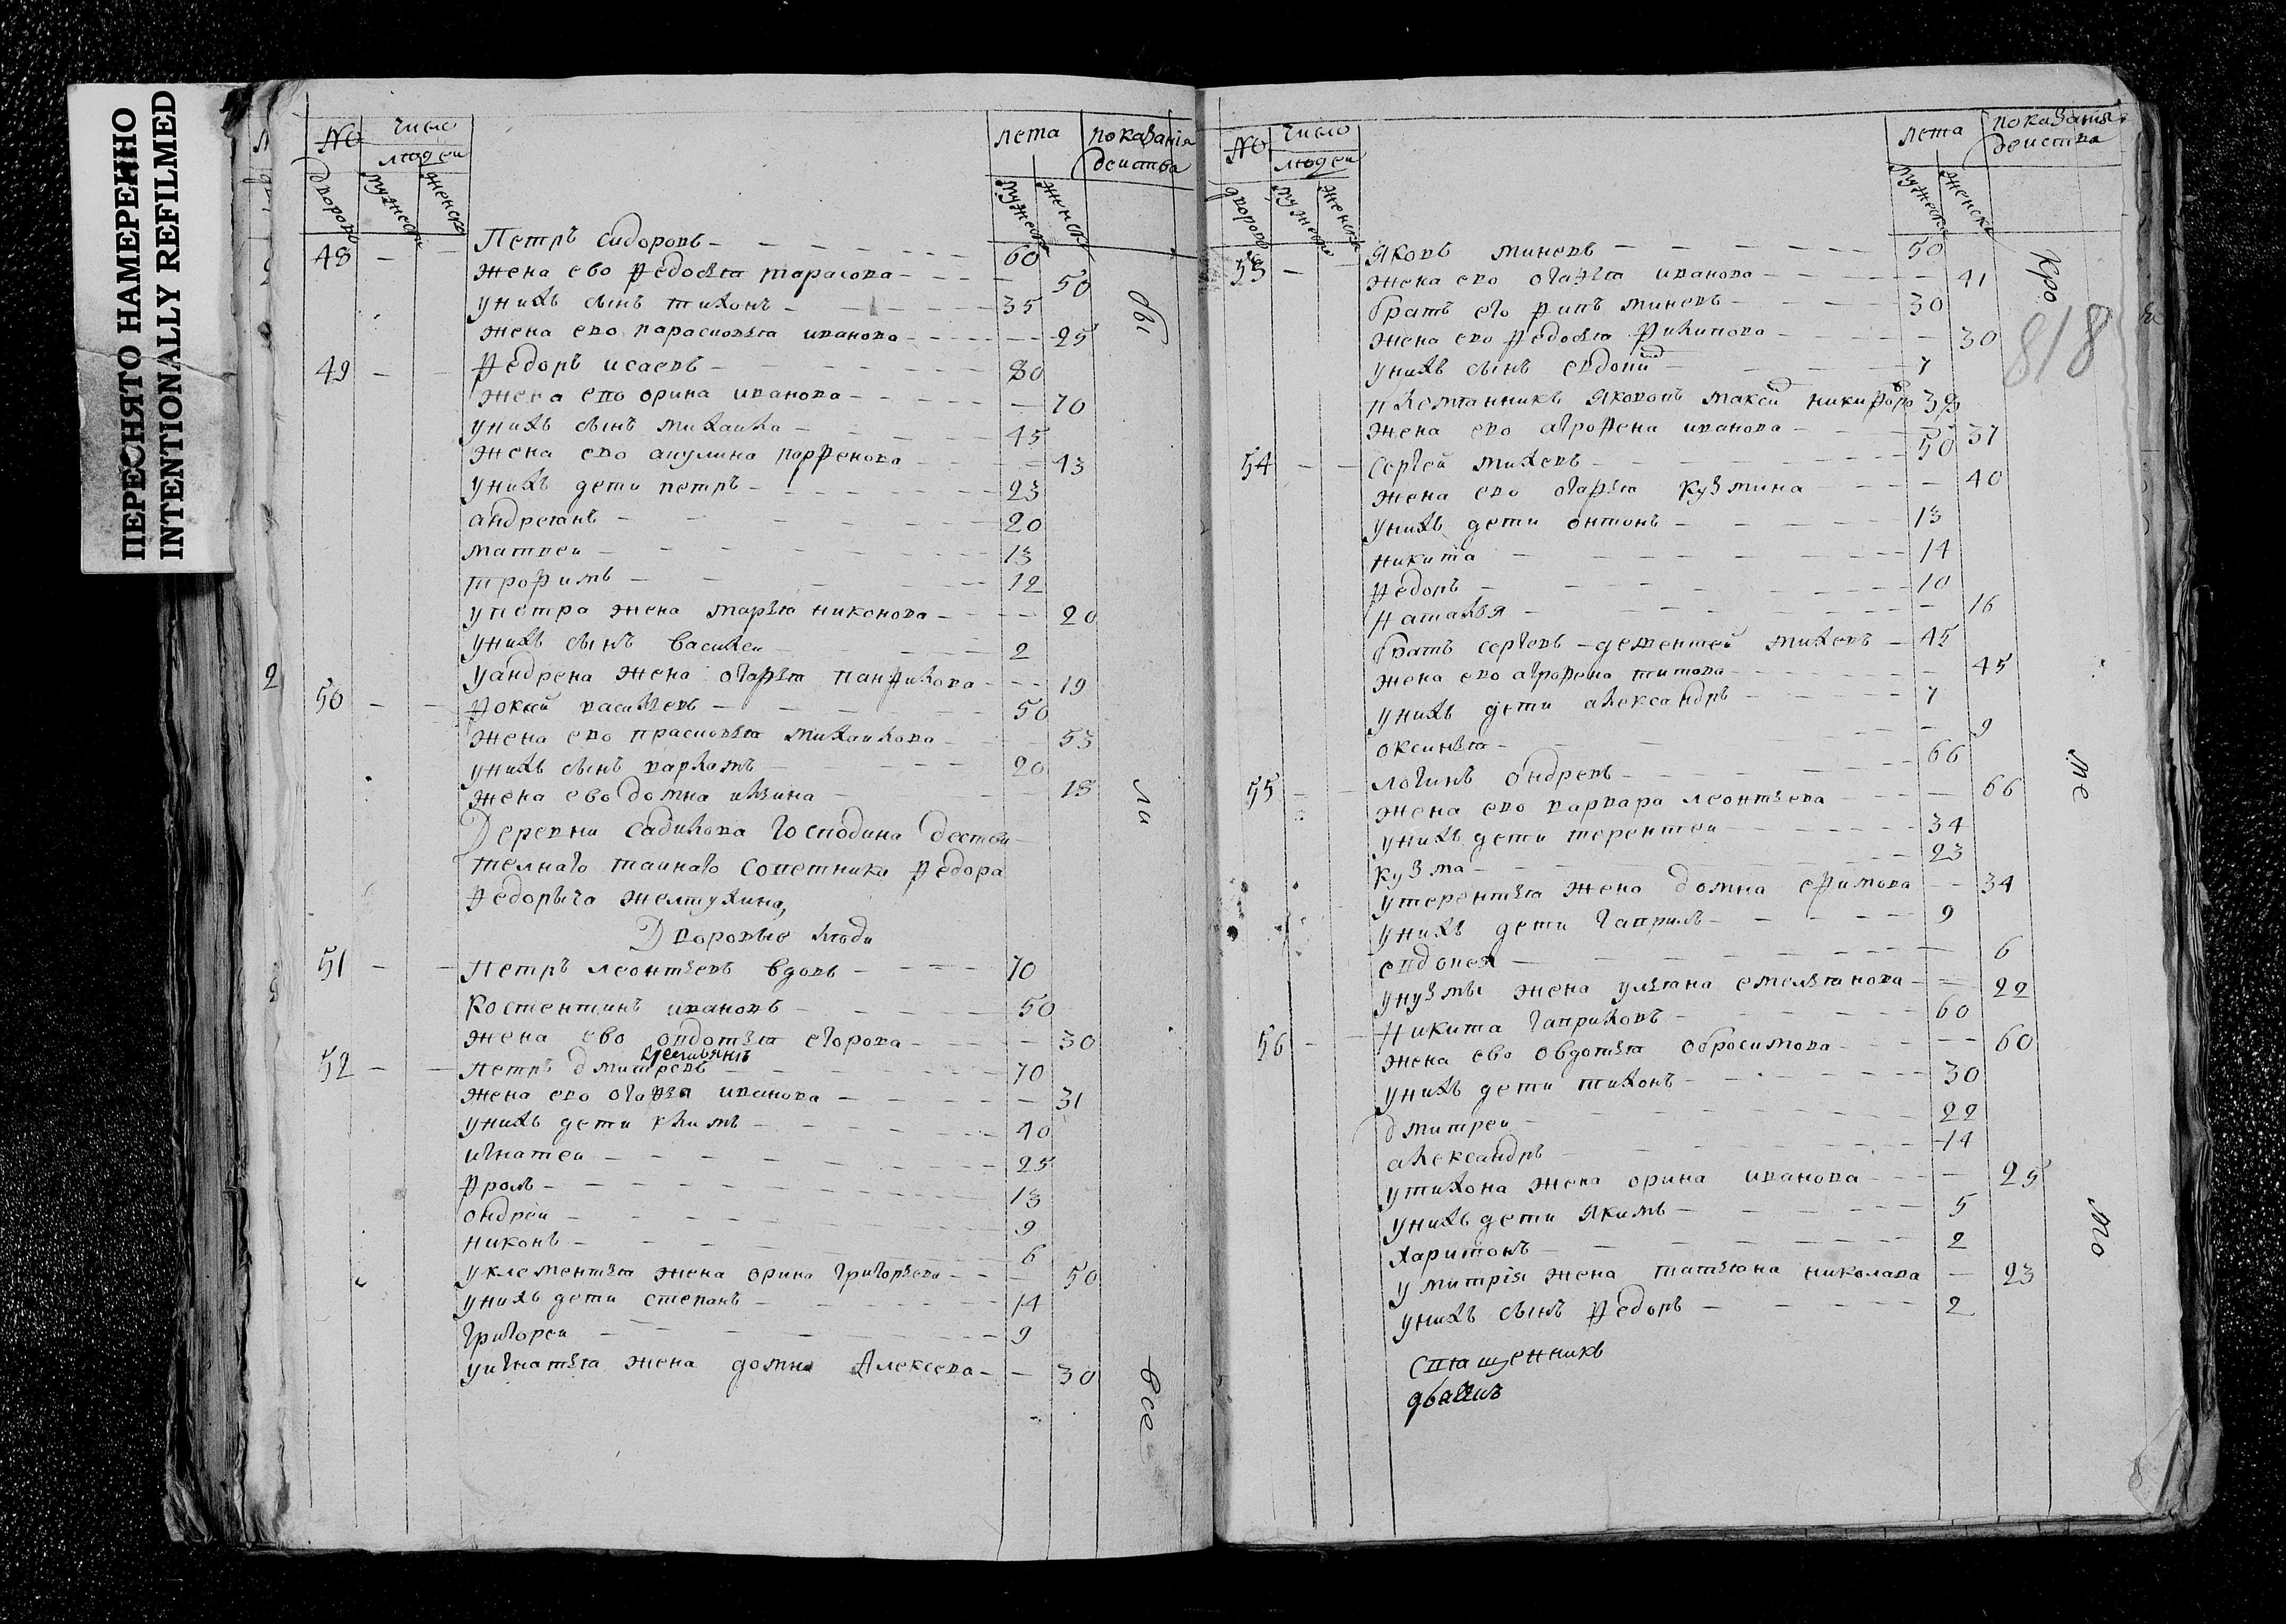 ПЕРЕСНЯТО НАМЕРЕННО
INTENTIONALLY REFILMED
№ число лета показанiя
людей действа
дворовъ мужеска женска мужеска женска
48 Петръ Сидоровъ 60
жена ево федосья тарасова 50
у нихъ сынъ тихонъ 35
жена ево парасковья иванова 25
49 федоръ исаевъ 80
жена ево орина иванова 70
у нихъ сынъ михаила 45
жена ево акулина парфенова 43
у нихъ дети петръ 23
андреянъ 20
матвеи 13
трофимъ 12
у петра жена марья никонова 20
у нихъ сынъ василеи 2
у андреяна жена огафья панфилова 19
50 фокей васильевъ 50
жена ево прасковья михаилова 53
у нихъ сынъ варламъ 20
жена ево домна ильина 18
Деревни садилова Господина действи
телнаго таинаго советника федора
федорыча желтухина,
Дворовые люди
51 Петръ леонтьевъ вдовъ 70
Костентинъ ивановъ 50
жена ево овдотья егорова 30
крестьянъ
52 Петръ дмитревъ 70
жена ево огафья иванова 31
у нихъ дети климъ 40
игнатеи 25
фролъ 13
ондреи 9
никонъ 6
у клементья жена орина григорьева 50
у нихъ дети степанъ 14
григореи 9
у игнатья жена домна Алексева 30
бы
ли
все
№ число лета показания
людеи действа
дворовъ мужеска женска мужеска женска
818
53 яковъ миневъ 50
жена ево огафья иванова 41
братъ его фипъ миневъ 30
жена ево федосья филипова 30
у нихъ сынъ евдоким 7
племянникъ яковопъ максим никифоро 39
жена ево агрофена иванова 37
54 Сергей михевъ 50
жена ево огарья кузмина 40
у нихъ дети онтонъ 13
никита 14
федоръ 10
наталья 16
братъ сергевъ дементей михевъ 45
жена ево агрофена титова 45
у нихъ дети александръ 7
оксинья 9
55 логинъ ондревъ 66
жена ево варвара леонтьева 66
у нихъ дети терентеи 34
кузма 23
у терентья жена домна ефимова 34
у нихъ дети гаврилъ 9
евдокея 6
у кузмы жена ульяна емельянова 22
56 Никита гавриловъ 60
жена ево овдотья обросимова 60
у нихъ дети тихонъ 30
дмитреи 22
александръ 14
у тихона жена орина иванова 25
у нихъ дети якимъ 5
харитонъ 2
у митрiя жена татьяна николава 23
у нихъ сынъ федоръ 2
священникъ
кро
ме
то